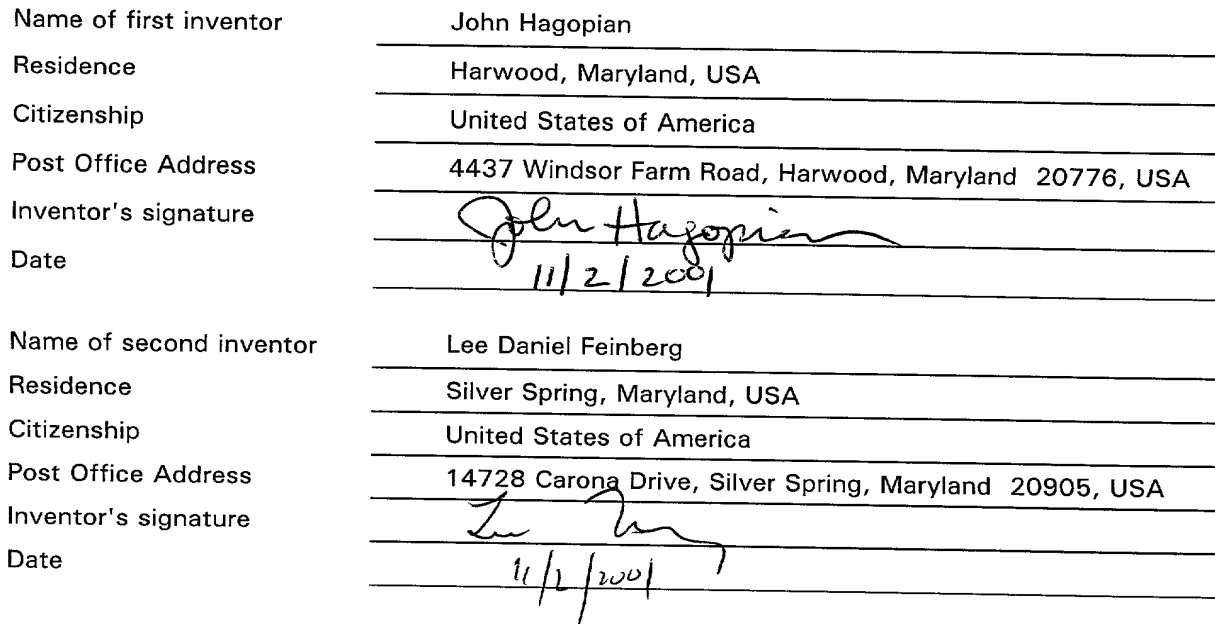 Name of first inventor John Hagopian
Residence Harwood, Maryland, USA
Citizenship United States of America
Post Office Address 4437 Windsor Farm Road, Harwood, Maryland 20776, USA
Inventor's signature John Hagopian
Date 11/2/2001
Name of second inventor Lee Daniel Feinberg
Residence Silver Spring, Maryland, USA
Citizenship United States of America
Post Office Address 14728 Carona Drive, Silver Spring, Maryland 20905, USA
Inventor's signature Lee
Date 11/2/2001